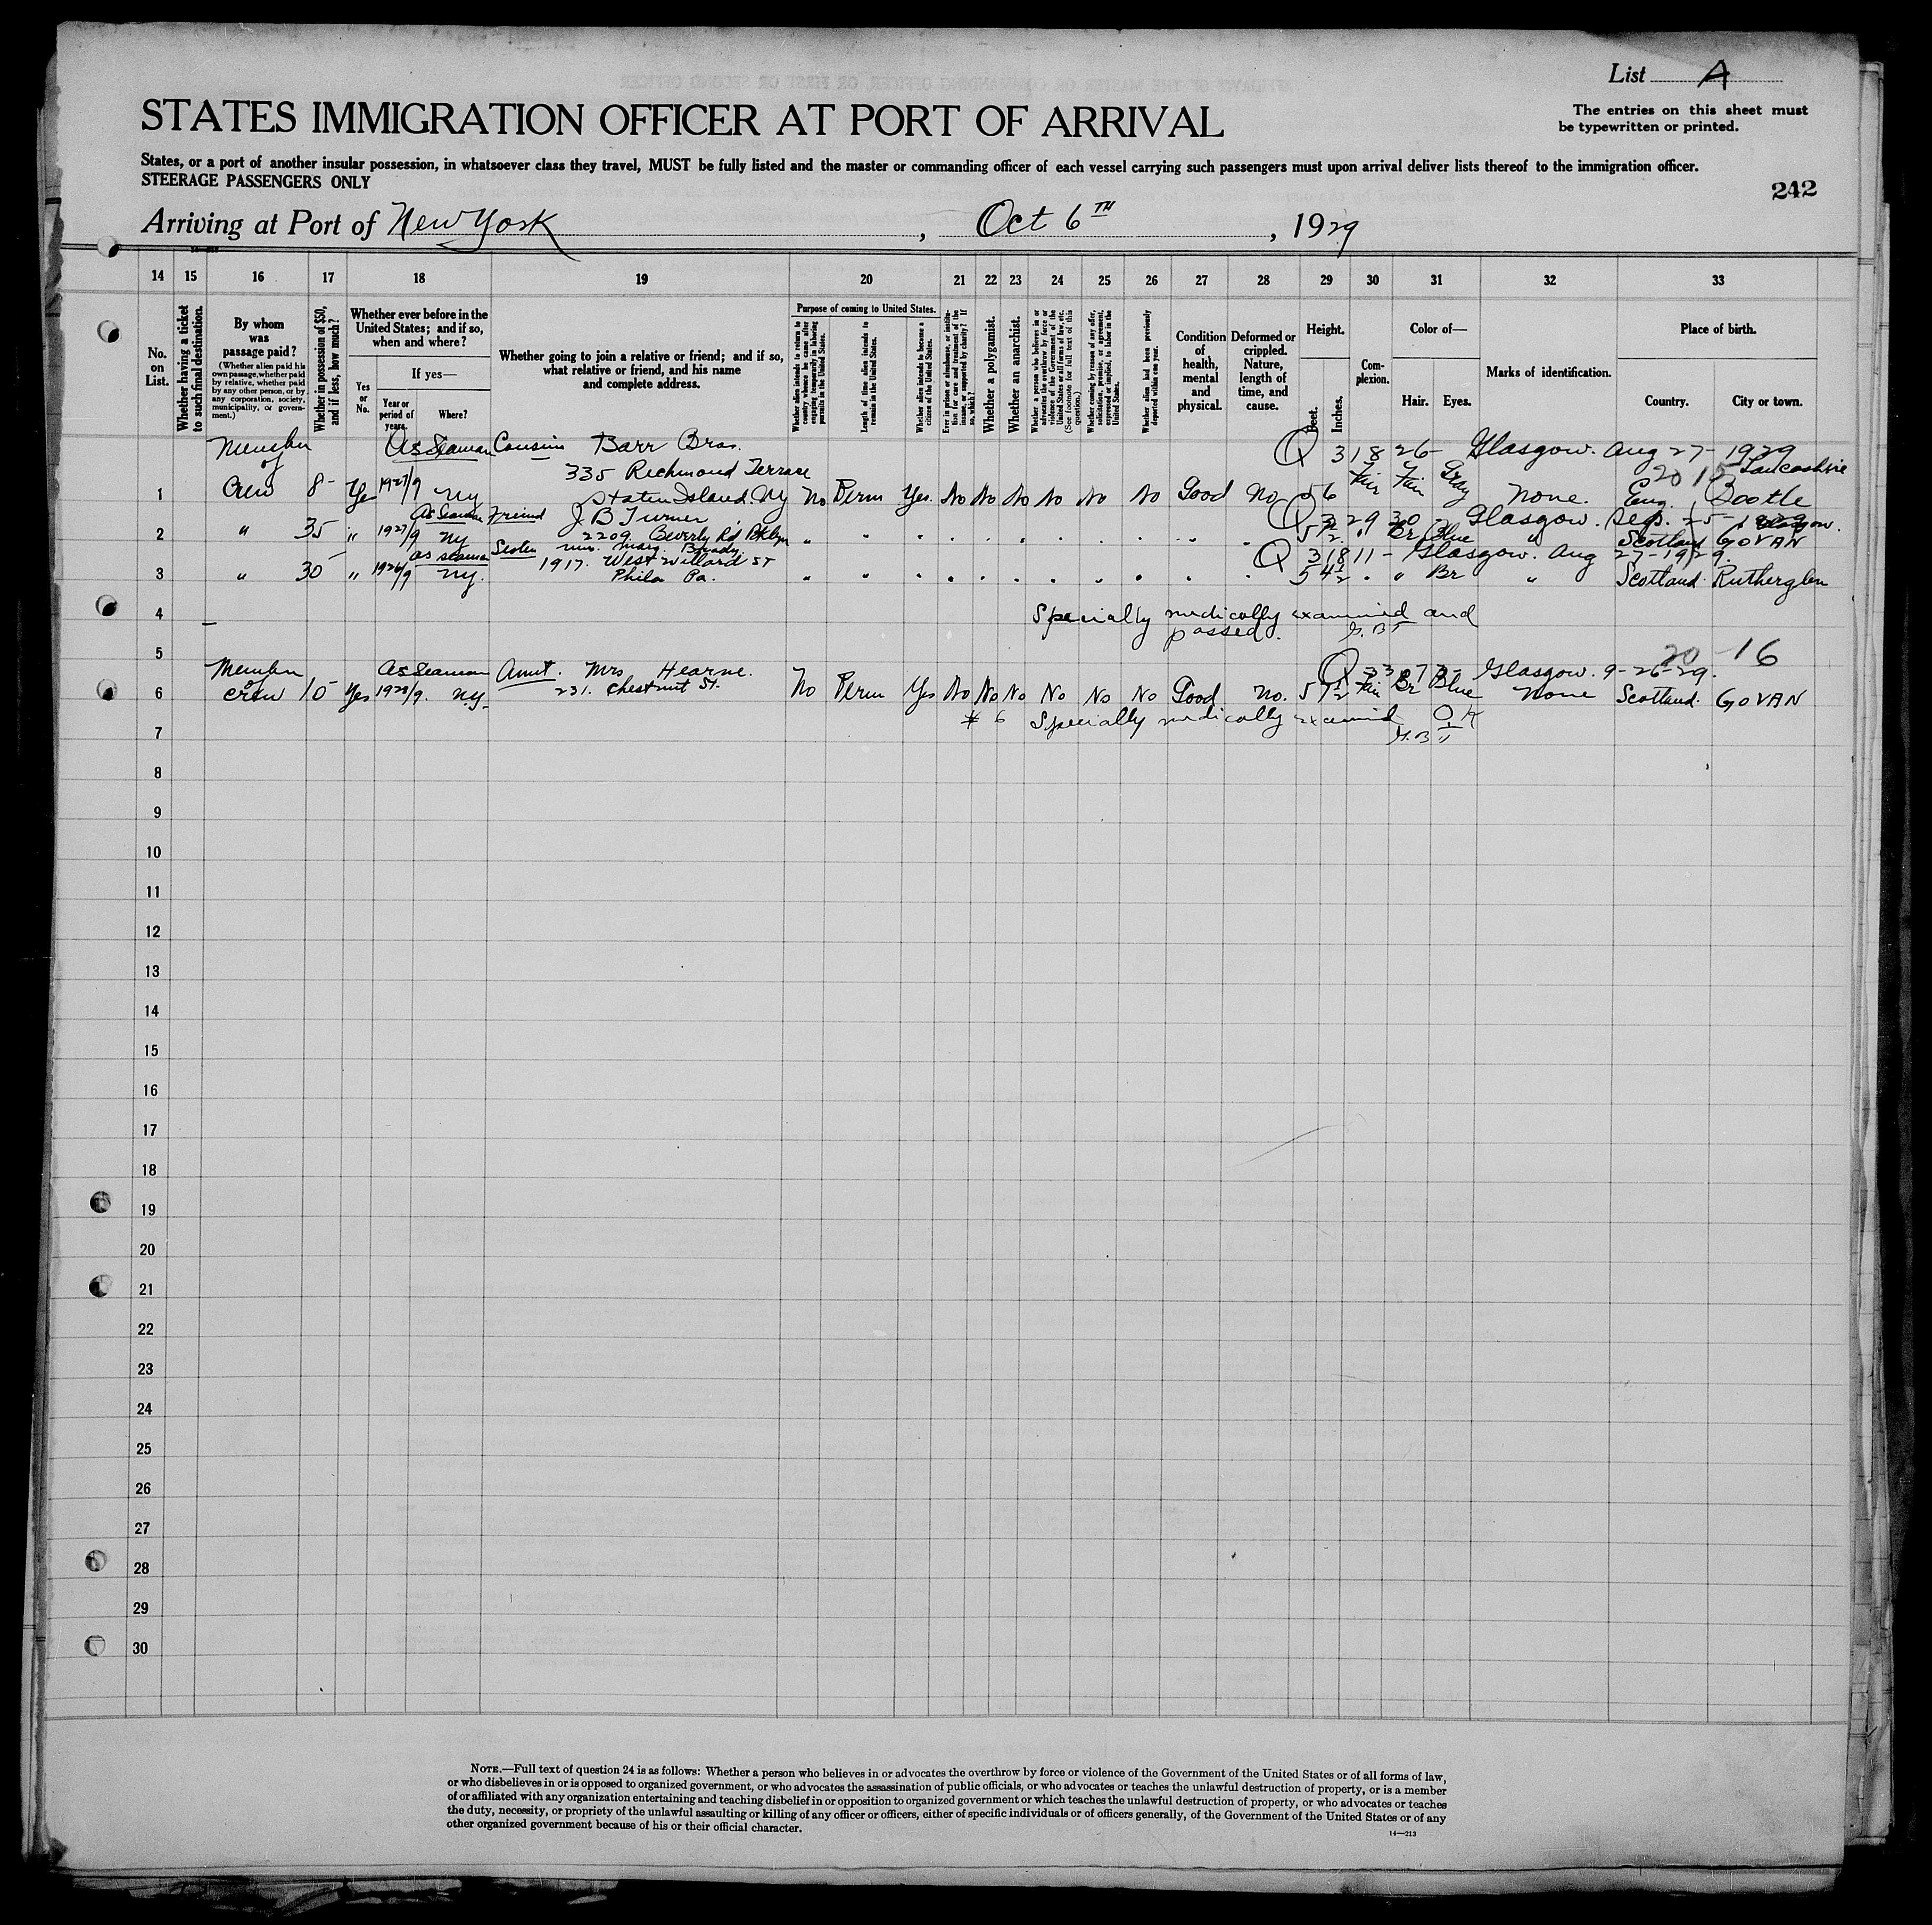 List A
STATES IMMIGRATION OFFICER AT PORT OF ARRIVAL
The entries on this sheet must
be typewritten or printed.
States, or a port of another insular possession, in whatsoever class they travel, MUST be fully listed and the master or commanding officer of each vessel carrying such passengers must upon arrival deliver lists thereof to the immigration officer.
STEERAGE PASSENGERS ONLY
242
Arriving at Port of New York, Oct 6TH, 1929
14 15 16 17 18 19 20 21 22 23 24 25 26 27 28 29 30 31 32 33
No. on List.
Whether having a ticket to such final destination.
By whom was passage paid?
(Whether alien paid his own passage, whether paid by relative, whether paid by any other person, or by any corporation, society, municipality, or government.)
Whether in possession of $50, and if less, how much?
Whether ever before in the United States; and if so, when and where?
Yes or No.
If yes—
Year or period of years.
Where?
Whether going to join a relative or friend; and if so, what relative or friend, and his name and complete address.
Purpose of coming to United States.
Whether alien intends to return to country whence he came after engaging temporarily in laboring pursuits in the United States.
Length of time alien intends to remain in the United States.
Whether alien intends to become a citizen of the United States.
Ever in prison or almshouse, or institution for care and treatment of the insane, or supported by charity? If so, which?
Whether a polygamist.
Whether an anarchist.
Whether a person who believes in or advocates the overthrow by force or violence of the Government of the United States or all forms of law, etc. (See footnote for full text of this question.)
Whether coming by reason of any offer, solicitation, promise, or agreement, expressed or implied, to labor in the United States.
Whether alien had been previously deported within one year.
Condition of health, mental and physical.
Deformed or crippled. Nature, length of time, and cause.
Height.
Feet. Inches.
Complexion.
Color of—
Hair. Eyes.
Marks of identification.
Place of birth.
Country. City or town.
Member of As Seaman Cousin Barr Bros. Q 31826- Glasgow. Aug 27-1929
335 Richmond Terrace 20 15 Lancashire
1 Crew 8- Yes 1927/9 NY Staten Island. NY No Perm Yes. No No No No No No Good No 5 6 Fair Fair Gray None. Eng. Bootle
As Seaman Friend J B Turner Q Glasgow. Sep. 25-1929
2 " 35 " 1927/9 NY 2209. Beverly Rd Bklyn " Br Blue " Scotland GOVAN
as seaman Sister Mrs. Marg. Brady. Q 31811- Glasgow. Aug 27-1929.
1917. West Willard ST
3 " 30 " 1926/9 NY. Phila Pa. 5 4½ " " Br " Scotland. Rutherglen
4 Specially medically examined and
passed.
5 20-16
Member As Seaman Aunt. Mrs Hearne. Q Glasgow. 9-26-29.
6 of crew 10 Yes 1928/9. NY. 231. Chestnut St. No Perm Yes No No No No No No Good No. 5 7½ Fair Br Blue None Scotland. GOVAN
# 6 Specially medically examined O.K
7
8
9
10
11
12
13
14
15
16
17
18
19
20
21
22
23
24
25
26
27
28
29
30
NOTE.—Full text of question 24 is as follows: Whether a person who believes in or advocates the overthrow by force or violence of the Government of the United States or of all forms of law,
or who disbelieves in or is opposed to organized government, or who advocates the assassination of public officials, or who advocates or teaches the unlawful destruction of property, or is a member
of or affiliated with any organization entertaining and teaching disbelief in or opposition to organized government or which teaches the unlawful destruction of property, or who advocates or teaches
the duty, necessity, or propriety of the unlawful assaulting or killing of any officer or officers, either of specific individuals or of officers generally, of the Government of the United States or of any
other organized government because of his or their official character.
14—213